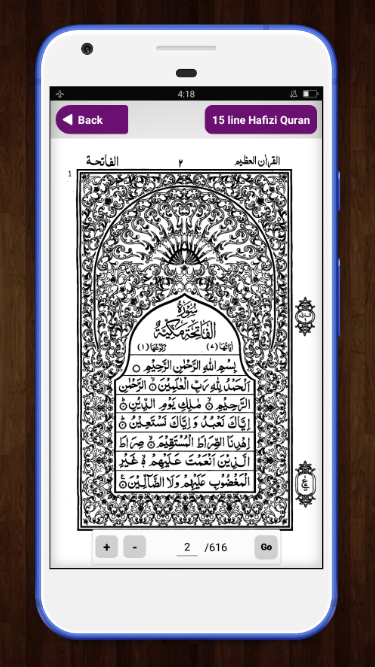 4:18
Back
15 line Hafizi Quran
القرآن العظيم ٢ الفاتحة
1
سُوْرَةُ
الْفَاتِحَةِ مَكِّيَّةٌ
اٰيَاتُهَا (٧) رُكُوْعُهَا (١)
بِسْمِ اللّٰهِ الرَّحْمٰنِ الرَّحِيْمِ ○
اَلْحَمْدُ لِلّٰهِ رَبِّ الْعٰلَمِيْنَ ۝ الرَّحْمٰنِ
الرَّحِيْمِ ۝ مٰلِكِ يَوْمِ الدِّيْنِ ۝
اِيَّاكَ نَعْبُدُ وَ اِيَّاكَ نَسْتَعِيْنُ ۝
اِهْدِنَا الصِّرَاطَ الْمُسْتَقِيْمَ ۝ صِرَاطَ
الَّذِيْنَ اَنْعَمْتَ عَلَيْهِمْ ۙ غَيْرِ
الْمَغْضُوْبِ عَلَيْهِمْ وَلَا الضَّآلِّيْنَ ۝
+ - 2 /616 Go